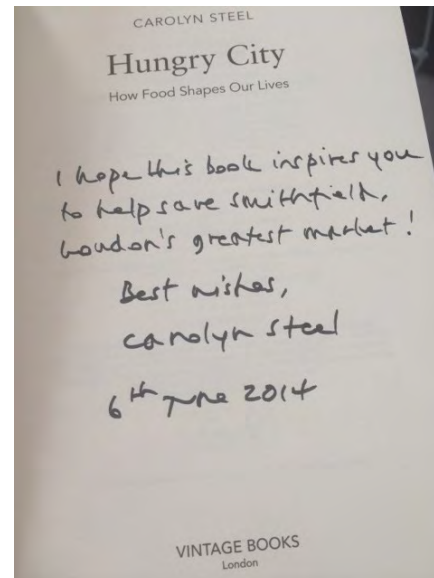 CAROLYN STEEL
Hungry City
How Food Shapes Our Lives
I hope this book inspires you
to help save smithfield,
London's greatest market!
Best wishes,
carolyn steel
6th June 2014
VINTAGE BOOKS
London